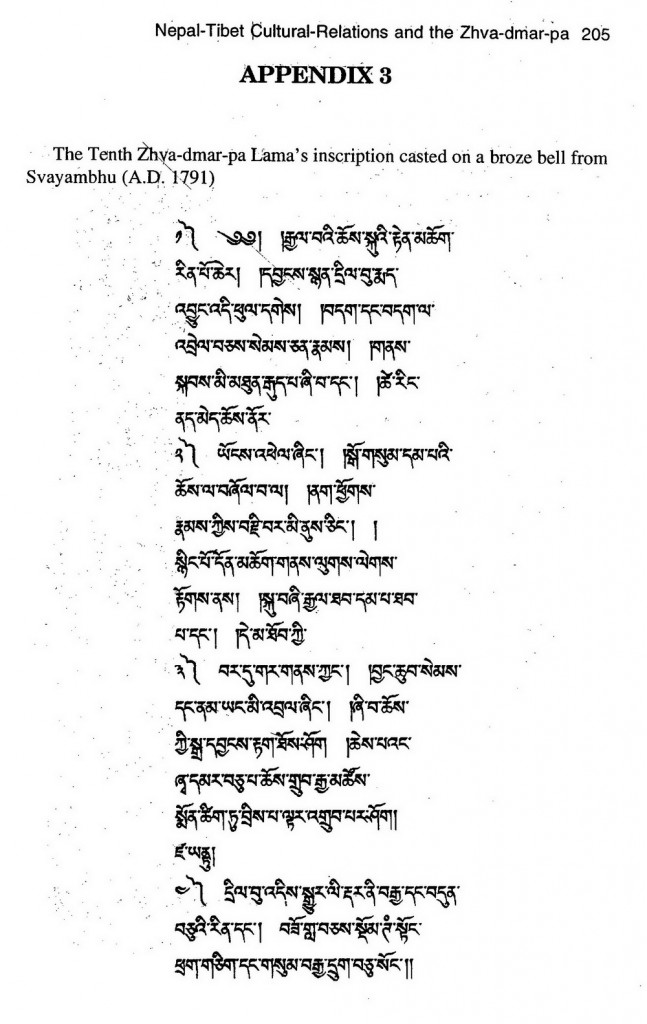 Nepal-Tibet Cultural-Relations and the Zhva-dmar-pa 205
APPENDIX 3
The Tenth Zhva-dmar-pa Lama's inscription casted on a broze bell from
Svayambhu (A.D. 1791)
༡༽ ༄༅། །རྒྱལ་བའི་ཆོས་སྐུའི་རྟེན་མཆོག་
རིན་པོ་ཆེར། །དབྱངས་སྙན་དྲིལ་བུ་རྨད་
འབྱུང་འདི་ཕུལ་དགེས། །བདག་དང་བདག་ལ་
འབྲེལ་བཅས་སེམས་ཅན་རྣམས། །གནས་
སྐབས་མི་མཐུན་རྒུད་པ་ཞི་བ་དང་། །ཚེ་རིང་
ནད་མེད་ཆོས་ནོར་
༢༽ ཡོངས་འཕེལ་ཞིང་། །སྒོ་གསུམ་དམ་པའི་
ཆོས་ལ་བཞོལ་བ་ལ། །ནག་ཕྱོགས་
རྣམས་ཀྱིས་བརྫི་བར་མི་ནུས་ཅིང་། །
སྙིང་པོ་དོན་མཆོག་གནས་ལུགས་ལེགས་
རྟོགས་ནས། །སྐུ་བཞི་རྒྱལ་ཐབ་དམ་པ་ཐབ་
པ་དང་། །དེ་མ་ཐོབ་ཀྱི་
༣༽ བར་དུ་གར་གནས་ཀྱང་། །བྱང་ཆུབ་སེམས་
དང་ནམ་ཡང་མི་འབྲལ་ཞིང་། །ཞི་བ་ཆོས་
ཀྱི་སྒྲ་དབྱངས་རྟག་ཐོས་ཤོག །ཅེས་པའང་
ཞྭ་དམར་བཅུ་པ་ཆོས་གྲུབ་རྒྱ་མཚོས་
སྨོན་ཚིག་ཏུ་བྲིས་པ་ལྟར་འགྲུབ་པར་ཤོག།
ཛ་ཡནྟུ།
༤༽ དྲིལ་བུ་འདིས་སྒྱུར་ལི་རྡར་ནི་བརྒྱ་དང་བདུན་
བཅུའི་རིན་དང་། བཟོ་གླ་བཅས་སྡོམ་ཊཾ་སྟོང་
ཕྲག་གཅིག་དང་གསུམ་བརྒྱ་དྲུག་བཅུ་སོང་།།